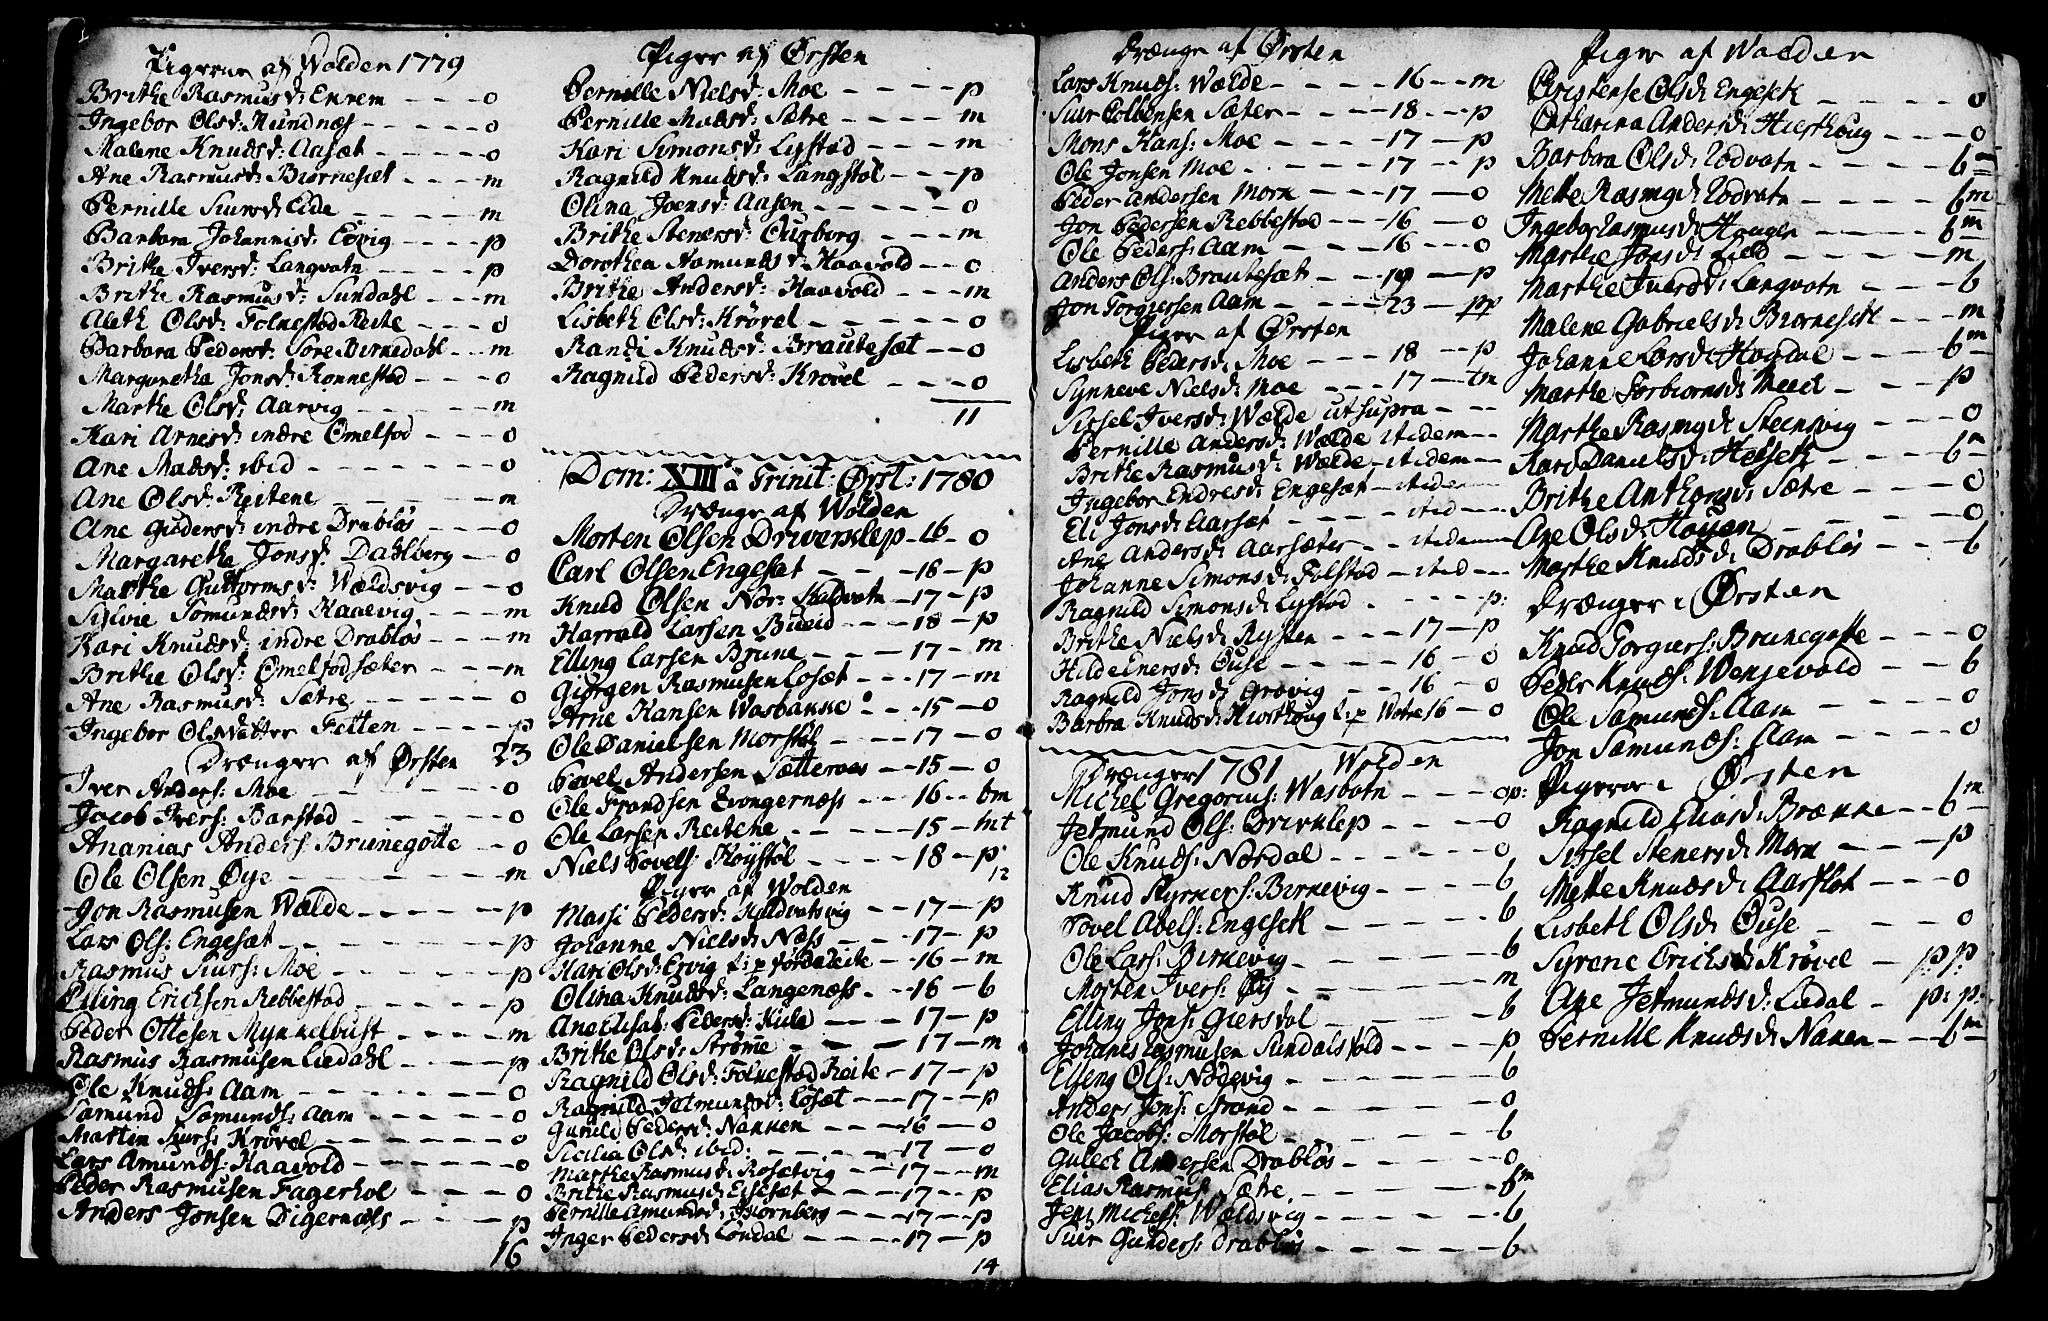 Pigerne af Wolden 1779
Brithe Rasmusd: Enrem - - - - o
Ingebor Olsd: Mundnæs - - - - o
Malene Knudsd: Aasæt - - - - o
Ane Rasmusd: Biørnesæt - - - - m
Pernille Siursd: Eide - - - - - m
Barbara Johannisd: Eevig - - - - p
Brithe Iversd: Langvatn - - - - p
Brithe Rasmusd: Sundahl - - - m
Aleth Olsd: Folnestad Reite - - - o
Barbara Pedersd: Søre Birnedahl - - m
Margaretha Jonsd: Rønnestad - - - - o
Marthe Olsd: Aarvig - - - - - - m
Kari Arnesd: indre Omelfod - - - o
Ane Madsd: ibid - - - - - - - o
Ane Olsd: Reitene - - - - - m
Ane Gudersd: indre Drabløs - - - o
Margarethe Jonsd: Dahlberg - - o
Marthe Guttormsd: Wældsvig - - - o
Silvie Somundsd: Haaevig - - - - m
Kari Knudsd: indre Drabløs - - - m
Brithe Olsd: Omelfodsæter - - - - m
Ane Rasmusd: Sætre - - - - - - o
Ingebor Olsdatter Fetten - - - - p
Drænger af Ørsten 23
Iver Anders: Moe - - - - - - o
Jacob Ivers: Barstad - - - - - o
Ananias Anders: Brunegotte - - o
Ole Olsen Øye - - - - - - - m
Jon Rasmusen Wælde - - - - - - p
Lars Ols: Engesæt - - - - - - p
Rasmus Siurs: Moe - - - - - - p
Elling Erichsen Rebbestad - - - - - p
Peder Ottesen Myklebust - - - - - m
Rasmus Rasmusen Liedahl - - - - p
Ole Knuds: Aam - - - - - - - o
Samund Somunds: Aam - - - - - o
Martin Siurs: Krøvel - - - - - - o
Lars Amunds: Haavold - - - - - - o
Peder Rasmusen Fagerhol - - - - o
Anders Jonsen Digernæs - - - - p
16
Piger af Ørsten
Pernille Nielsd: Moe - - - - - p
Pernille Madsd: Sætre - - - - - m
Kari Simonsd: Lystad - - - - m
Ragnild Knudsd: Langstøl - - - p
Olina Joensd: Aasen - - - - - - o
Brithe Stenersd: Ourberg - - - - m
Dorothea Aamundsd: Haavold - - o
Brithe Andersd: Haavold - - - m
Lisbeth Olsd: Krøvel - - - - - o
Randi Knudsd: Brautesæt - - o
Ragnild Pedersd: Krøvel - - - - o
11
Dom: XIII à Trinit: Ørst: 1780
Drænge af Wolden
Morten Olsen Driverklep - 16 - o
Carl Olsen Engesæt - - - - 18 - p
Knud Olsen Nor: Kaldvatn - 17 - p
Harrald Larsen Bueid - - - 18 - p
Elling Larsen Brune - - - - 17 - m
Giørgen Rasmusen Losæt - - - 17 - m
Arne Hansen Wasbakke - - - 15 - o
Ole Danielsen Morstøl - - - - 17 - o
Povel Andersen Sætternes - - 15 - o
Ole Frandsen Evongernæss - - - 16 - - bm
Ole Larsen Reitene - - - - - 15 - mt
Niels Povels: Høystøl - - - - 18 - p
12
Piger af Wolden
Massi Pedersd: Kaldvatsvig - - 17 - p
Johanne Nielsd: Næss - - - 17 - p
Kari Olsd: Ervig t: p Førdaleite - 16 - m
Olina Knudsd: Langenæss - - 16 - b
Ane Elisab: Pedersd: Kile - - - 17 - p
Brithe Olsd: Strømme - - - - 17 - m
Ragnild Olsd: Folnestad Reite - 17 - p
Ragnild Jetmundsd: Losæt - - - 17 - - p
Gurild Pedersd: Nakken - - - 16 - - o
Sicilia Olsd: ibid: - - - - - - 17 - o
Marthe Rasmusd: Rosetvig - - - 17 - - m
Brithe Rasmusd: Eisesæt - - - - 17 - - p
Pernille Amundsd: Biørnberg - - - 17 - - p
Inger Pedersd: Løndal - - - - - 17 - p
14
Drænge af Ørsten
Lars Knuds: Wælde - - - - - 16 - - m
Siur Colbensen Sæter - - - - 18 - - - p
Mons Hans: Moe - - - - - 17 - - p
Ole Jonsen Moe - - - - - 17 - - p
Peder Andersen Mork - - - 17 - - o
Jon Pedersen Rebbestad - - - 16 - - o
Ole Peders: Aam - - - - 16 - - - o
Anders Ols: Brautesæt - - - 19 - - p
Jon Torgiersen Aam - - - - 23 - - pp
Piger af Ørsten
Lisbeth Pedersd: Moe - - - - 18 - - p
Synneve Nielsd: Moe - - - 17 - - bm
Sissel Iversd: Wælde ut supra - - -
Pernille Andersd: Wælde itidem - -
Brithe Rasmusd: Wælde - itidem - -
Ingebor Endresd: Engesæt - itidem - - -
Eli Jonsd: Aarsæt - - - - itid - - -
Ane Andersd: Aarsæter - - itidem - -
Johanne Simonsd: Folstad - itid - - -
Ragnild Simonsd: Lystad - - - - p:
Brithe Nielsd: Rysten - - - 17 - - p
Hilde Enersd: Ouse - - - - - 16 - o
Ragnild Jonsd: Grøvig - - - 16 - - o
Barbra Knudsd: Hiorthoug t: p Watne 16 - o
Drænger 1781 Wolden
Michel Gregorius: Wasbotn - - - - op:
Jetmund Ols: Drivklep - - - - o
Ole Knuds: Nordal - - - - - - o
Knud Styrkers: Birkevig - - - - b
Povel Abels: Engeseth - - - - - b
Ole Lars: Birkevig - - - - - - b
Morten Ivers: - - - - - - m
Elling Jons: Giersdal - - - - - b
Johanes Rasmusen Sundalsvold - - - - p
Elling Ols: Nødevig - - - - - - b
Anders Jons: Strand - - - - - - o
Ole Jacobs: Morstøl - - - - - - b
Guleck Andersen Drabløs - - - - - o
Elias Rasmus: Sætre - - - - - - bm
Jens Michels: Wældsvig - - - - - b
Siur Gunders: Drabløs - - - - - b
Piger af Wolden
Christense Olsd: Engeseth - - - - - o
Catharina Andersd: Hiorthoug - - - - o
Barbara Olsd: Rodvatn - - - - - bm
Mette Rasmusd: Rodvatn - - - - - bm
Ingebor Rasmusd: Haugen - - - - bm
Marthe Jonsd: Lied - - - - - - m
Marthe Iversd: Langvatn - - - - b
Malene Gabrielsd: Biørneseth - - - m
Johanne Larsd: Hogdal - - - - bm
Marthe Torbiørnsd: Meek - - - - p
Marthe Rasmusd: Steinsvig - - - - o
Kari Danielsd: Helseth - - - - bm
Brithe Anthonsd: Sætre - - - o
Ane Olsd: Høyen - - - - - - o
Marthe Knudsd: Drabløs - - - b
Drænger i Ørsten
Knud Torgiers: Brunegotte - - - o
Peder Knuds: Wenjevold - - - - b
Ole Samunds: Aam - - - - - o
Jon Samunds: Aam - - - - - o
Pigerne i Ørsten
Ragnild Eliasd: Brække - - bm
Sissel Stenersd: Mork - - - - p
Mette Knudsd: Aarflot - - - o
Lisbeth Olsd: Ouse - - - - o
Syrene Erichsd: Krøvel - p: p:
Ane Jetmundsd: Liedal - p: p:
Pernille Knudsd: Nakken - - - bm